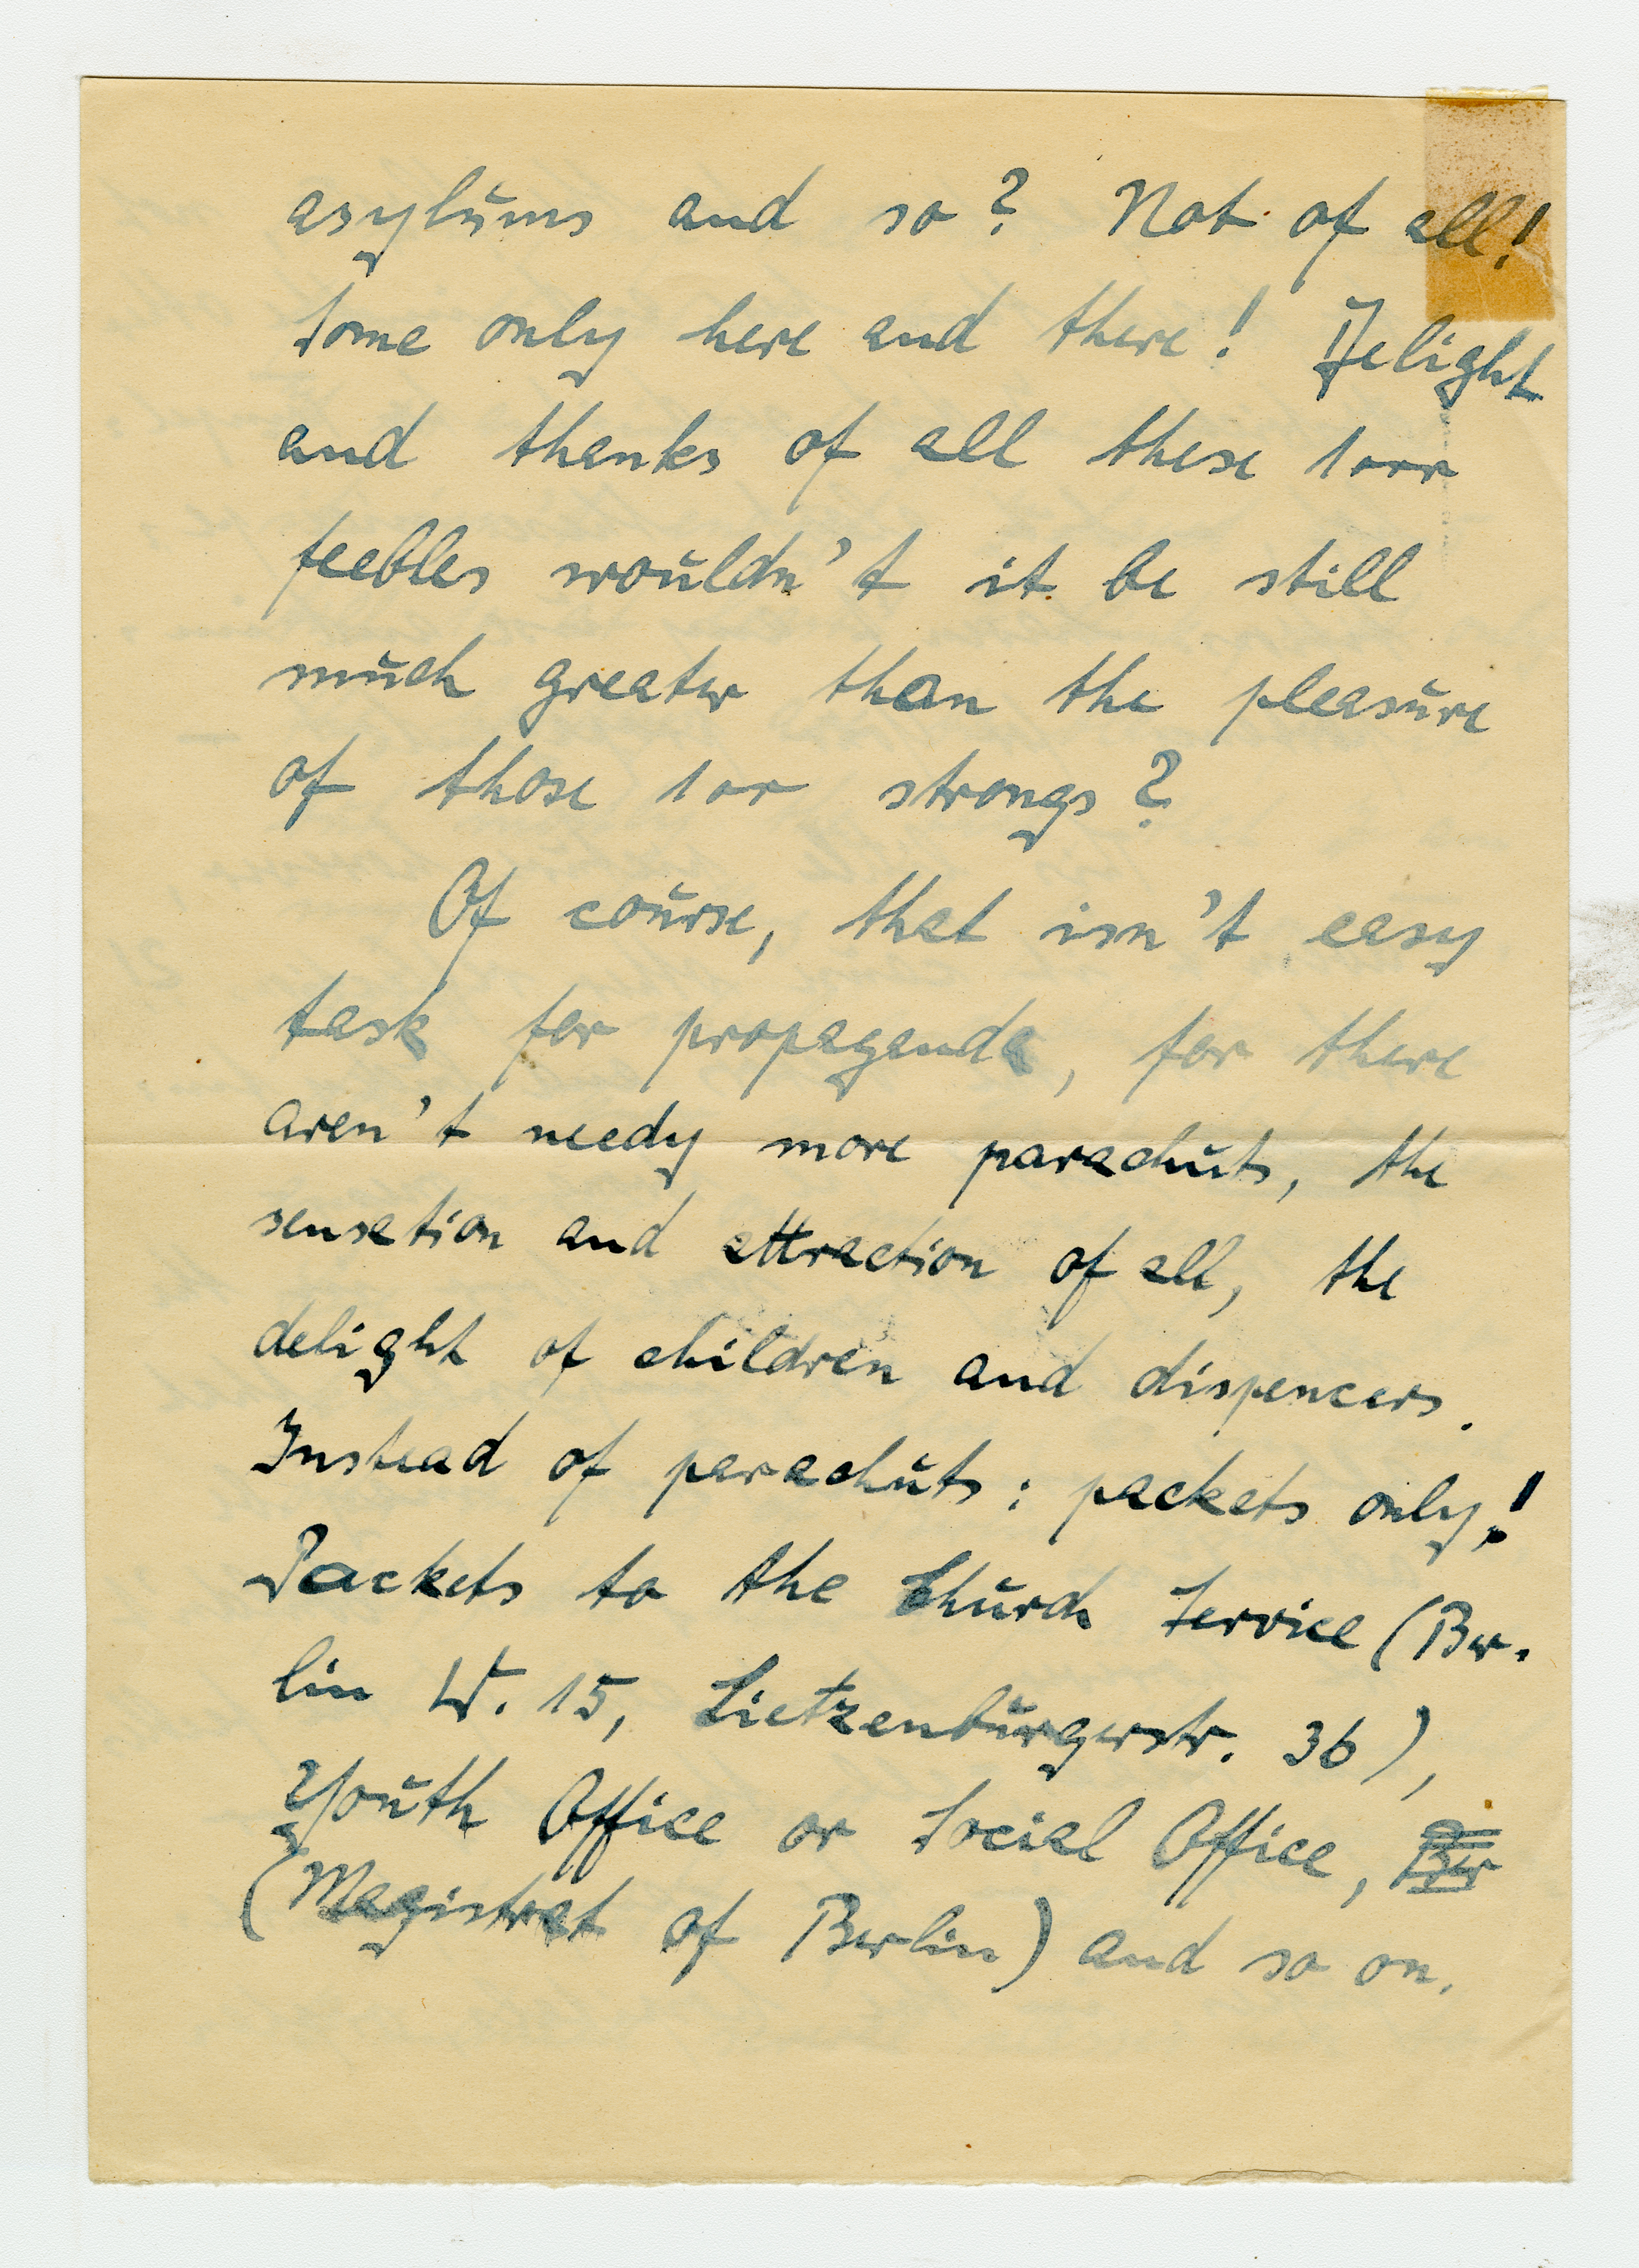 asylums and so? Not of all!
Some only here and there! Delight
and thanks of all these 1000
feebles wouldn't it be still
much greater than the pleasure
of those 100 strongs?
Of course, that isn't easy
task for propaganda, for there
aren't needy more parachuts, the
sensation and attraction of all, the
delight of children and dispencers.
Instead of parachuts: packets only!
Packets to the Church Service (Ber-
lin W. 15, Lietzenburgerstr. 36),
Youth Office or Social Office,
(Magistrat of Berlin) and so on.